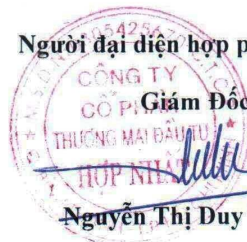 Người đại diện hợp p
Giám Đốc
CÔNG TY
CỔ PHẦN
THƯƠNG MẠI ĐẦU TƯ
HỢP NHẤT
Nguyễn Thị Duy